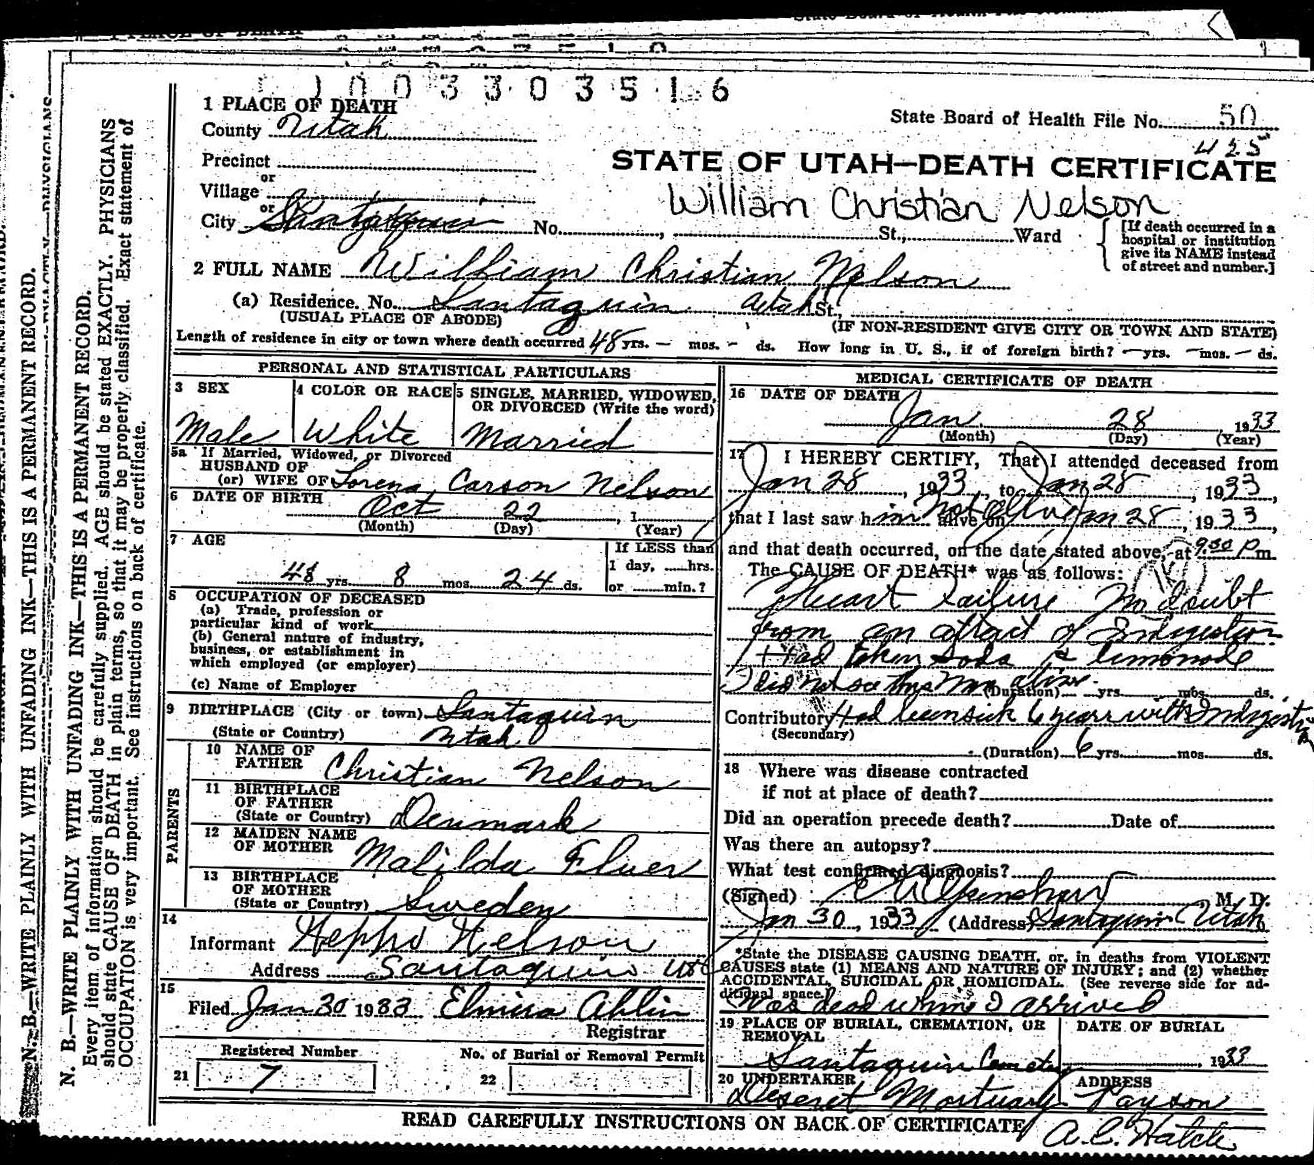 1 0 0 3 3 0 3 5 1 6
1 PLACE OF DEATH
County Utah
State Board of Health File No. 50
425
Precinct
or
Village
or
City Santaquin No. , St., Ward
STATE OF UTAH—DEATH CERTIFICATE
William Christian Nelson
[If death occurred in a
hospital or institution
give its NAME instead
of street and number.]
2 FULL NAME William Christian Nelson
(a) Residence. No. Santaquin Utah St.,
(USUAL PLACE OF ABODE) (IF NON-RESIDENT GIVE CITY OR TOWN AND STATE)
Length of residence in city or town where death occurred 48 yrs. — mos. — ds. How long in U. S., if of foreign birth? — yrs. — mos. — ds.
PERSONAL AND STATISTICAL PARTICULARS
3 SEX
Male
4 COLOR OR RACE
White
5 SINGLE, MARRIED, WIDOWED,
OR DIVORCED (Write the word)
Married
5a If Married, Widowed, or Divorced
HUSBAND OF
(or) WIFE OF Lorena Carson Nelson
6 DATE OF BIRTH Oct 22 , 1
(Month) (Day) (Year)
7 AGE
48 yrs 8 mos. 24 ds.
If LESS than
1 day, hrs.
or min.?
8 OCCUPATION OF DECEASED
(a) Trade, profession or
particular kind of work
(b) General nature of industry,
business, or establishment in
which employed (or employer)
(c) Name of Employer
9 BIRTHPLACE (City or town) Santaquin
(State or Country) Utah
PARENTS
10 NAME OF
FATHER Christian Nelson
11 BIRTHPLACE
OF FATHER
(State or Country) Denmark
12 MAIDEN NAME
OF MOTHER Matilda
13 BIRTHPLACE
OF MOTHER
(State or Country) Sweden
14
Informant Nelson
Address Santaquin Utah
15
Filed Jan 30 1933 Elmira Ahlin
Registrar
Registered Number
21 7
No. of Burial or Removal Permit
22
MEDICAL CERTIFICATE OF DEATH
16 DATE OF DEATH
Jan 28 , 1933
(Month) (Day) (Year)
17 I HEREBY CERTIFY, That I attended deceased from
Jan 28 , 1933 , to Jan 28 , 1933,
that I last saw him not alive on Jan 28 , 1933,
and that death occurred, on the date stated above, at 9:30 Pm.
The CAUSE OF DEATH* was as follows:
Heart Failure No doubt
from an attact of Indigestion
Had taken soda & lemonade
I did not see this man alive.
(Duration) yrs. mos. ds.
Contributory Had been sick 6 years with Indigestion
(Secondary)
(Duration) 6 yrs. mos. ds.
18 Where was disease contracted
if not at place of death?
Did an operation precede death? Date of
Was there an autopsy?
What test confirmed diagnosis?
(Signed) M. D.
Jan 30, 1933 (Address) Santaquin Utah
*State the DISEASE CAUSING DEATH, or, in deaths from VIOLENT
CAUSES state (1) MEANS AND NATURE OF INJURY; and (2) whether
ACCIDENTAL, SUICIDAL OR HOMICIDAL. (See reverse side for ad-
ditional space.)
Was dead when I arrived
19 PLACE OF BURIAL, CREMATION, OR
REMOVAL
Santaquin Cemetery
DATE OF BURIAL
, 1933
20 UNDERTAKER
Deseret Mortuary
ADDRESS
Payson
READ CAREFULLY INSTRUCTIONS ON BACK OF CERTIFICATE
A. C. Hatch
N. B.—WRITE PLAINLY WITH UNFADING INK—THIS IS A PERMANENT RECORD.
Every item of information should be carefully supplied. AGE should be stated EXACTLY. PHYSICIANS
should state CAUSE OF DEATH in plain terms, so that it may be properly classified. Exact statement of
OCCUPATION is very important. See instructions on back of certificate.
N. B.—WRITE PLAINLY WITH UNFADING INK—THIS IS A PERMANENT RECORD.